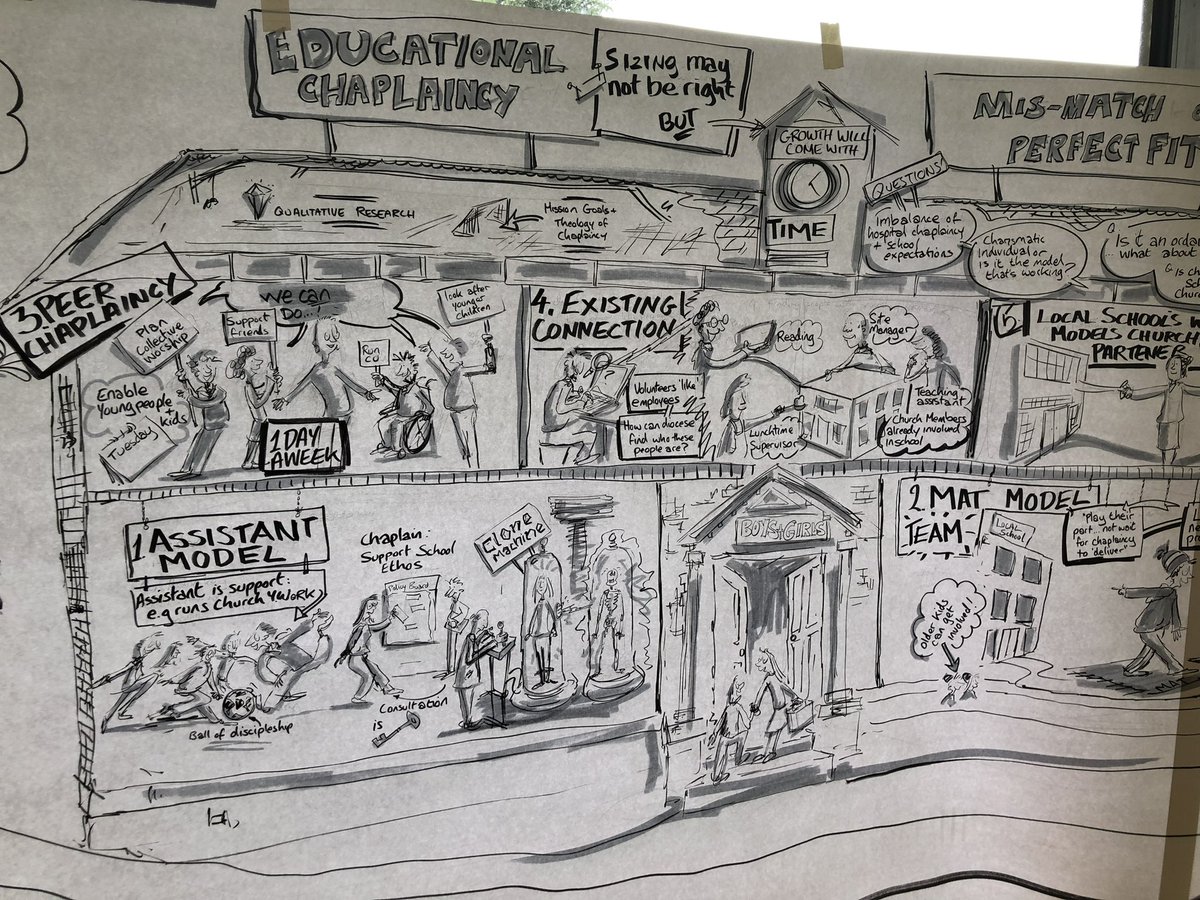 EDUCATIONAL
CHAPLAINCY
SIZING may
not be right
BUT
GROWTH WILL
COME WITH
TIME
MIS-MATCH
PERFECT FIT
QUALITATIVE RESEARCH
Mission Goals +
Theology of
Chaplaincy
QUESTIONS
Imbalance of
hospital chaplaincy
+ school
expectations
Charismatic
individual or
is it the model
that's working?
Is it an
what about
3 PEER
CHAPLAINCY
Plan
Collective
Worship
Support
friends
We can
DO...!
Run
CU
look after
younger
children
Enable
young people
+ kids
Tuesday
1 DAY
A WEEK
4. EXISTING
CONNECTION
Volunteers 'like'
employees
How can diocese
find who these
people are?
Reading
Site
Manager
Lunchtime
Supervisor
Teaching
assistant
Church Members
already involved
in school
5
LOCAL SCHOOL'S
MODELS CHURCH
PARTENER
1 ASSISTANT
MODEL
Assistant is support:
e.g runs Church YWORK
Ball of discipleship
Chaplain:
Support School
Ethos
Policy Board
Consultation
is
Clone
Machine
BOYS + GIRLS
2 MAT MODEL
TEAM
Local
School
"Play their
part.. not wait
for chaplaincy
to 'deliver'"
older kids
can get
involved!